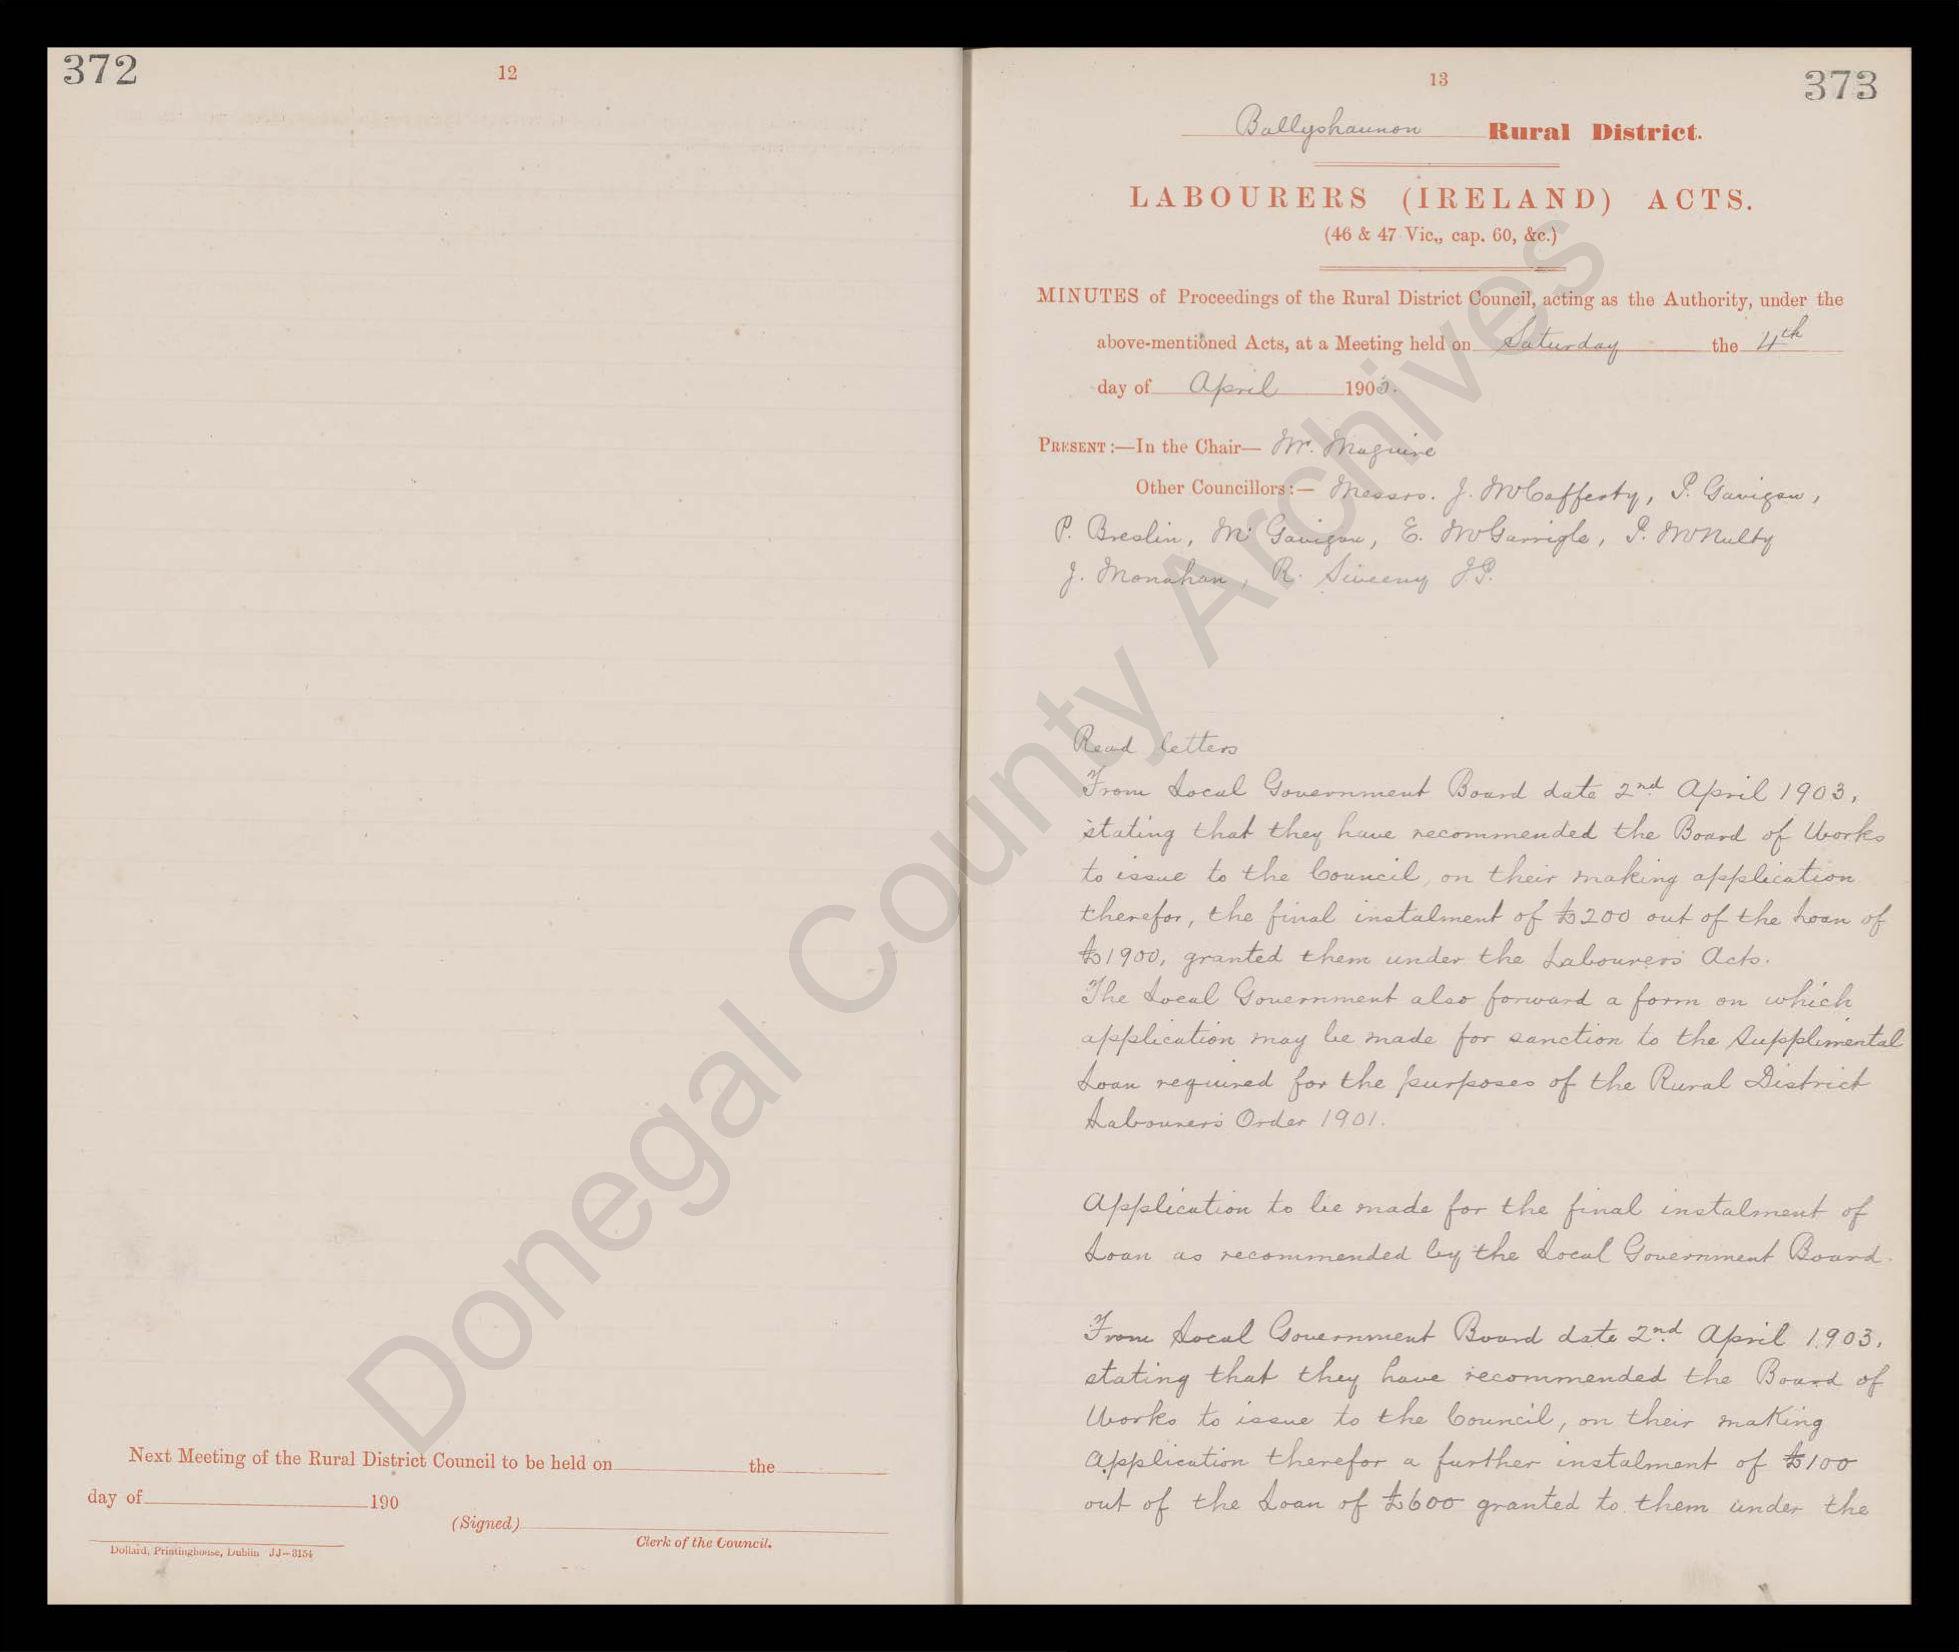 372
12
Next Meeting of the Rural District Council to be held on the
day of 190
(Signed)
Clerk of the Council.
Dollard, Printinghouse, Dublin JJ—3154
13
373
Ballyshannon Rural District.
LABOURERS (IRELAND) ACTS.
(46 & 47 Vic., cap. 60, &c.)
MINUTES of Proceedings of the Rural District Council, acting as the Authority, under the
above-mentioned Acts, at a Meeting held on Saturday the 4th
day of April 1903.
PRESENT:—In the Chair— Mr. Maguire
Other Councillors:— Messrs. J. McCafferty, P. Gavigan,
P. Breslin, M. Gavigan, E. McGarrigle, P. McNulty
J. Monahan, R. Sweeny J.P.
Read letters
From Local Government Board date 2nd April 1903,
stating that they have recommended the Board of Works
to issue to the Council, on their making application
therefor, the final instalment of £200 out of the Loan of
£1900, granted them under the Labourers Acts.
The Local Government also forward a form on which
application may be made for sanction to the Supplimental
Loan required for the purposes of the Rural District
Labourers Order 1901.
Application to be made for the final instalment of
Loan as recommended by the Local Government Board.
From Local Government Board date 2nd April 1903,
stating that they have recommended the Board of
Works to issue to the Council, on their making
Application therefor a further instalment of £100
out of the Loan of £600 granted to them under the
Donegal County Archives